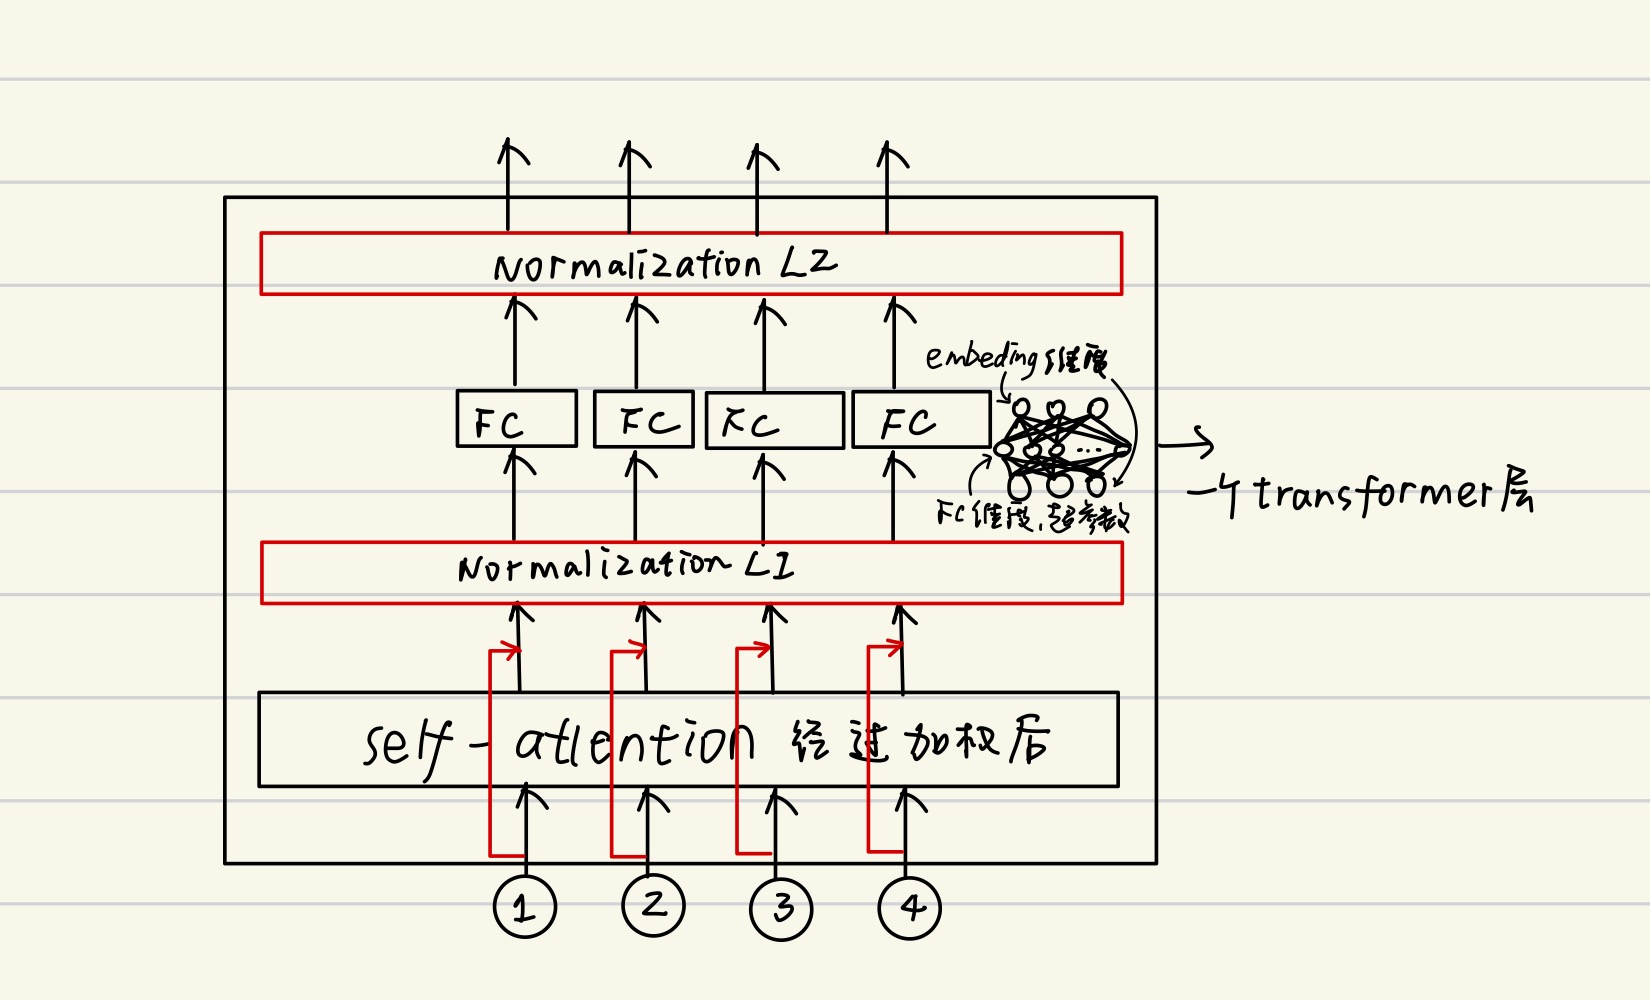 Normalization L2
embeding 维度
FC FC FC FC
FC维度,超参数
一个transformer层
Normalization L1
self-attention 经过加权后
1 2 3 4